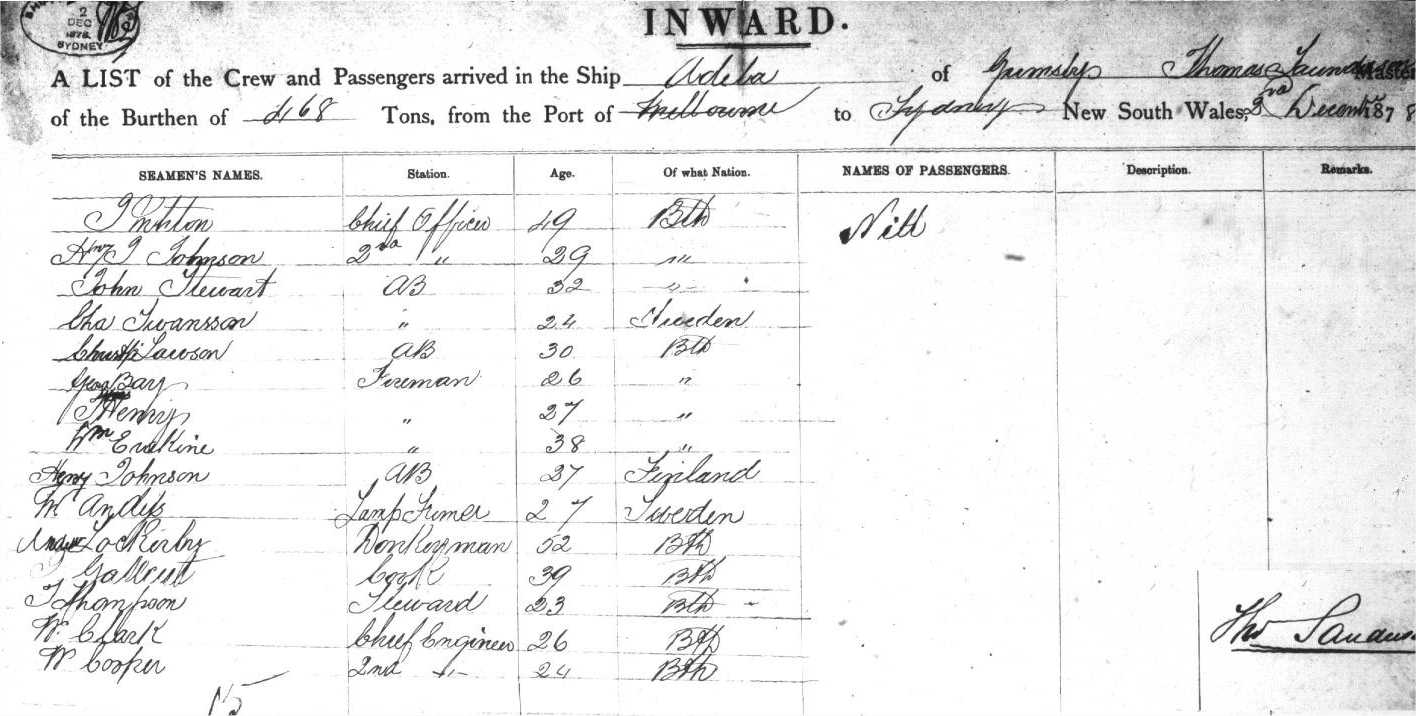 2
DEC
1878
SYDNEY
INWARD.
A LIST of the Crew and Passengers arrived in the Ship Adela of Grimsby Thomas Master
of the Burthen of 468 Tons, from the Port of Melbourne to Sydney New South Wales, Decemr 1878
SEAMEN'S NAMES. Station. Age. Of what Nation. NAMES OF PASSENGERS. Description. Remarks.
Chief Officer 49 Bth Nill
Hny J Johnson 2nd " 29 " "
John Stewart AB 32 "
Cha Swansson " 24 Sweden
Lawson AB 30 Bth
Geo Bay Fireman 26 "
Henry " 27 "
Wm Erskine " 38 "
Henry Johnson AB 27 Finland
Lamp Trimer 27 Sweden
Lockerby Donkeyman 52 Bth
Cook 39 Bth
J Thompson Steward 23 Bth
W. Clark Chief Engineer 26 Bth
W Cooper 2nd " 24 Bth
15
Tho